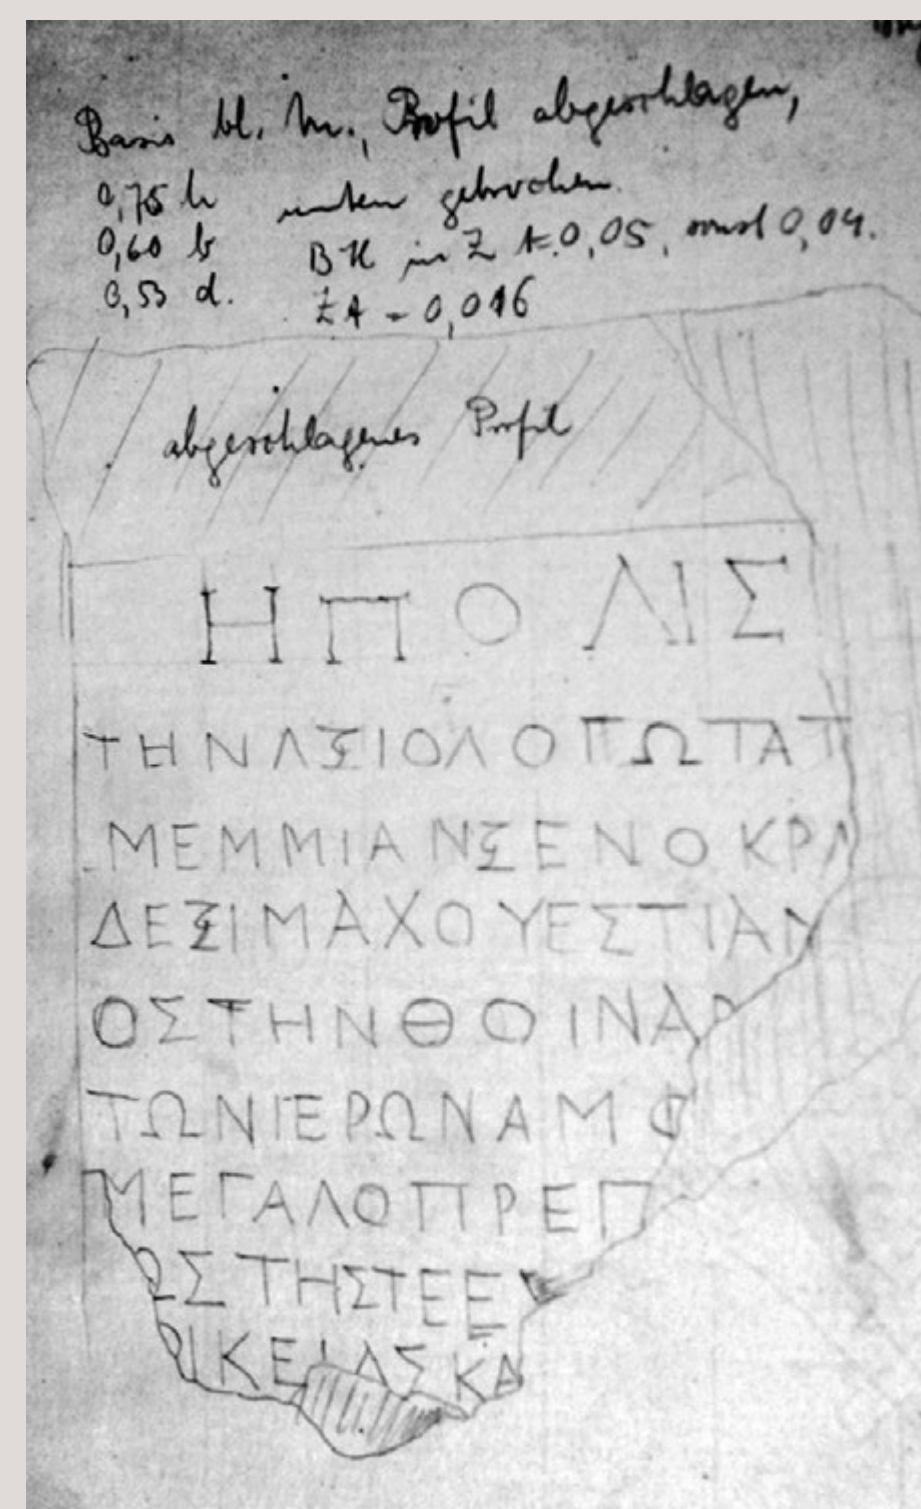 Basis bl. M., Profil abgeschlagen,
0,75 h unten gebrochen.
0,60 b BH in Z 1 = 0,05, sonst 0,04.
0,53 d. ZA = 0,016
abgeschlagenes Profil
ΗΠΟΛΙΣ
ΤΗΝΑΞΙΟΛΟΓΩΤΑΤ
ΜΕΜΜΙΑΝΞΕΝΟΚΡΑ
ΔΕΞΙΜΑΧΟΥΕΣΤΙΑΝ
ΟΣΤΗΝΘΟΙΝΑΡ
ΤΩΝΙΕΡΩΝΑΜΦ
ΜΕΓΑΛΟΠΡΕΠ
ΩΣΤΗΣΤΕΕ
ΡΙΚΕΙΑΣΚΑ